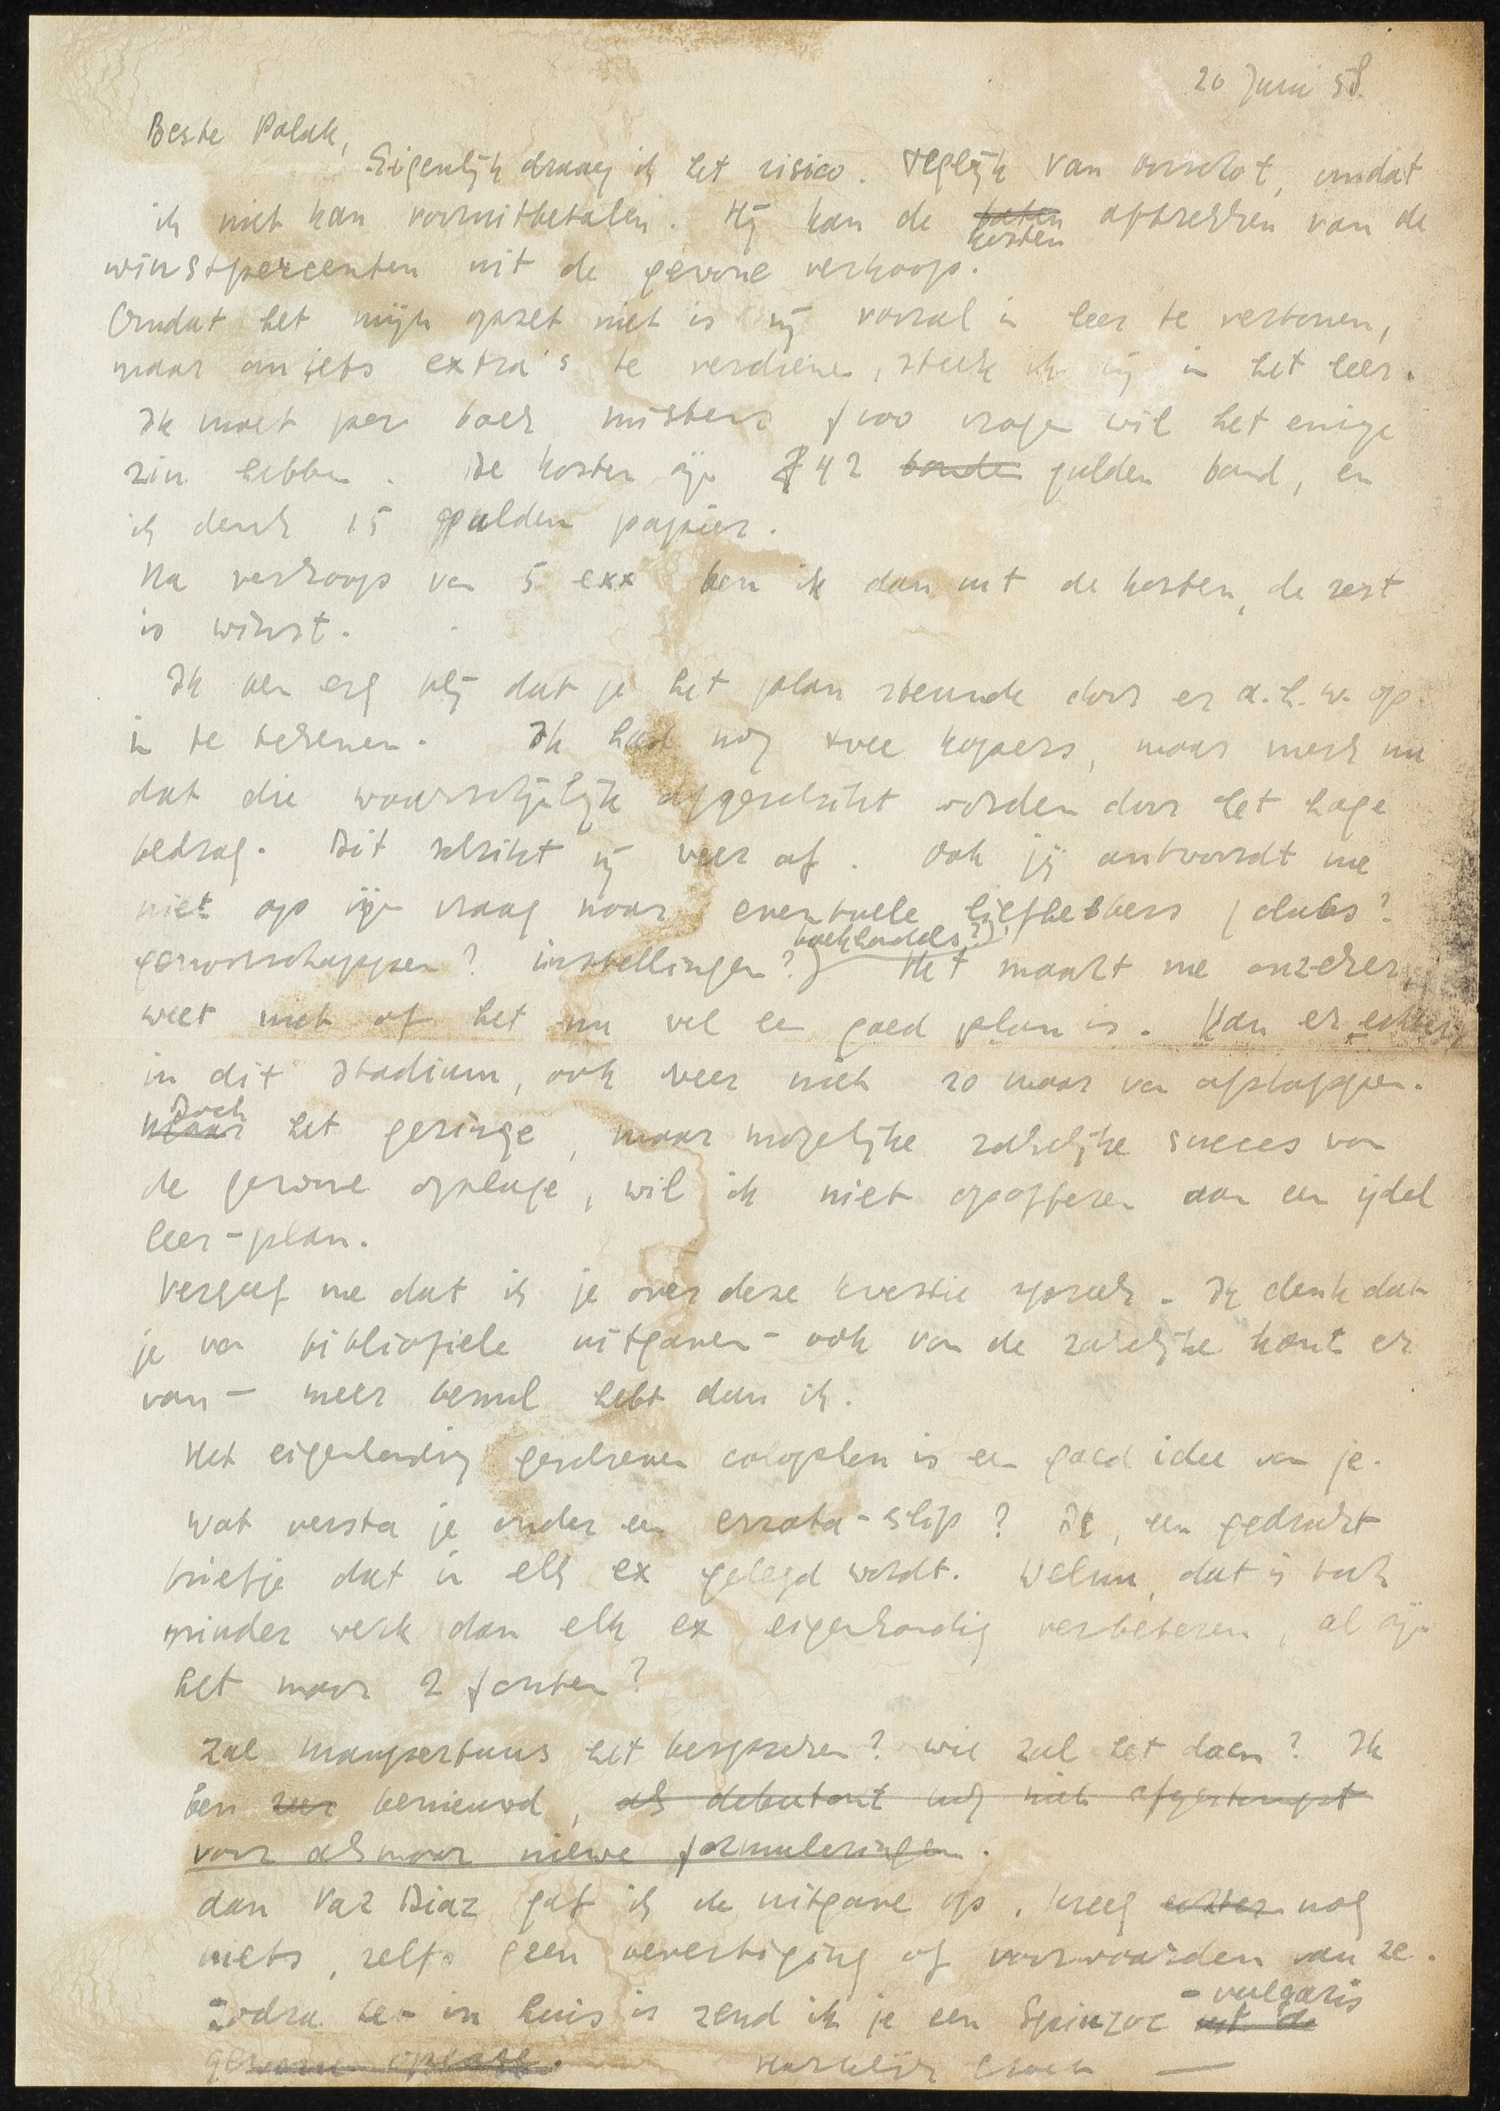 20 Juni 58.
Beste Polak,
Eigenlijk draag ik het risico. tegelijk van voorschot, omdat
ik niet kan vooruitbetalen. Hij kan de kosten aftrekken van de
winstpercenten uit de gewone verkoop.
Omdat het mijn opzet niet is mij vooral in leer te vertonen,
maar om iets extra's te verdienen, steek ik mij in het leer.
Ik moet per boek minstens f 100 vragen wil het enige
zin hebben. De kosten zijn f 42 gulden band, en
ik denk 15 gulden papier.
Na verkoop van 5 exx ben ik dan uit de kosten, de rest
is winst.
Ik ben erg blij dat je het plan steunde door er a.h.w. op
in te tekenen. Ik had nog twee kopers, maar merk nu
dat die waarschijnlijk afgeschrikt worden door het hoge
bedrag. Dit schrikt mij weer af. Ook jij antwoordt me
niet op mijn vraag naar eventuele liefhebbers (clubs?
genootschappen? instellingen? boekhandels?) Het maakt me onzeker,
weet niet of het nu wel een goed plan is. Kan er echter
in dit stadium, ook weer niet zo maar van afstappen.
Doch het geringe, maar mogelijke zakelijke succes van
de gewone oplage, wil ik niet opofferen aan een ijdel
leer-plan.
Vergeef me dat ik je over deze kwestie spreek. Ik denk dat
je van bibliofiele uitgaven - ook van de zakelijke kant er
van - meer benul hebt dan ik.
Het eigenhandig geschreven colophon is een goed idee van je.
Wat versta je onder een errata-slip? Ik, een gedrukt
briefje dat in elk ex gelegd wordt. Welnu, dat is toch
minder werk dan elk ex eigenhandig verbeteren, al zijn
het maar 2 fouten?
Zal Maupertuus het bespreken? wie zal het doen? Ik
ben zeer benieuwd, als debutant nog niet afgestompt
voor alsmaar nieuwe formuleringen.
Aan Vaz Diaz gaf ik de uitgave op, kreeg echter nog
niets, zelfs geen bevestiging of voorwaarden van ze.
Zodra het in huis is zend ik je een Spinroc - vulgaris uit de
gewone oplage. Hartelijk